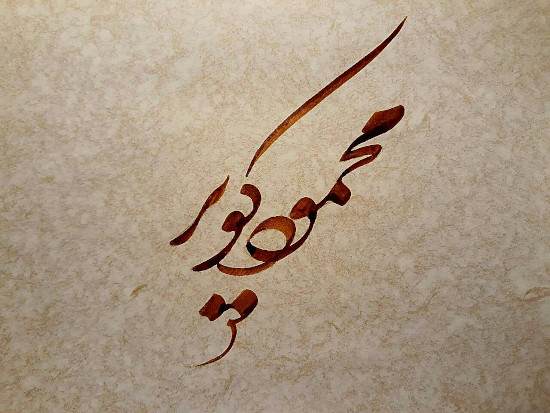 محمود کویر